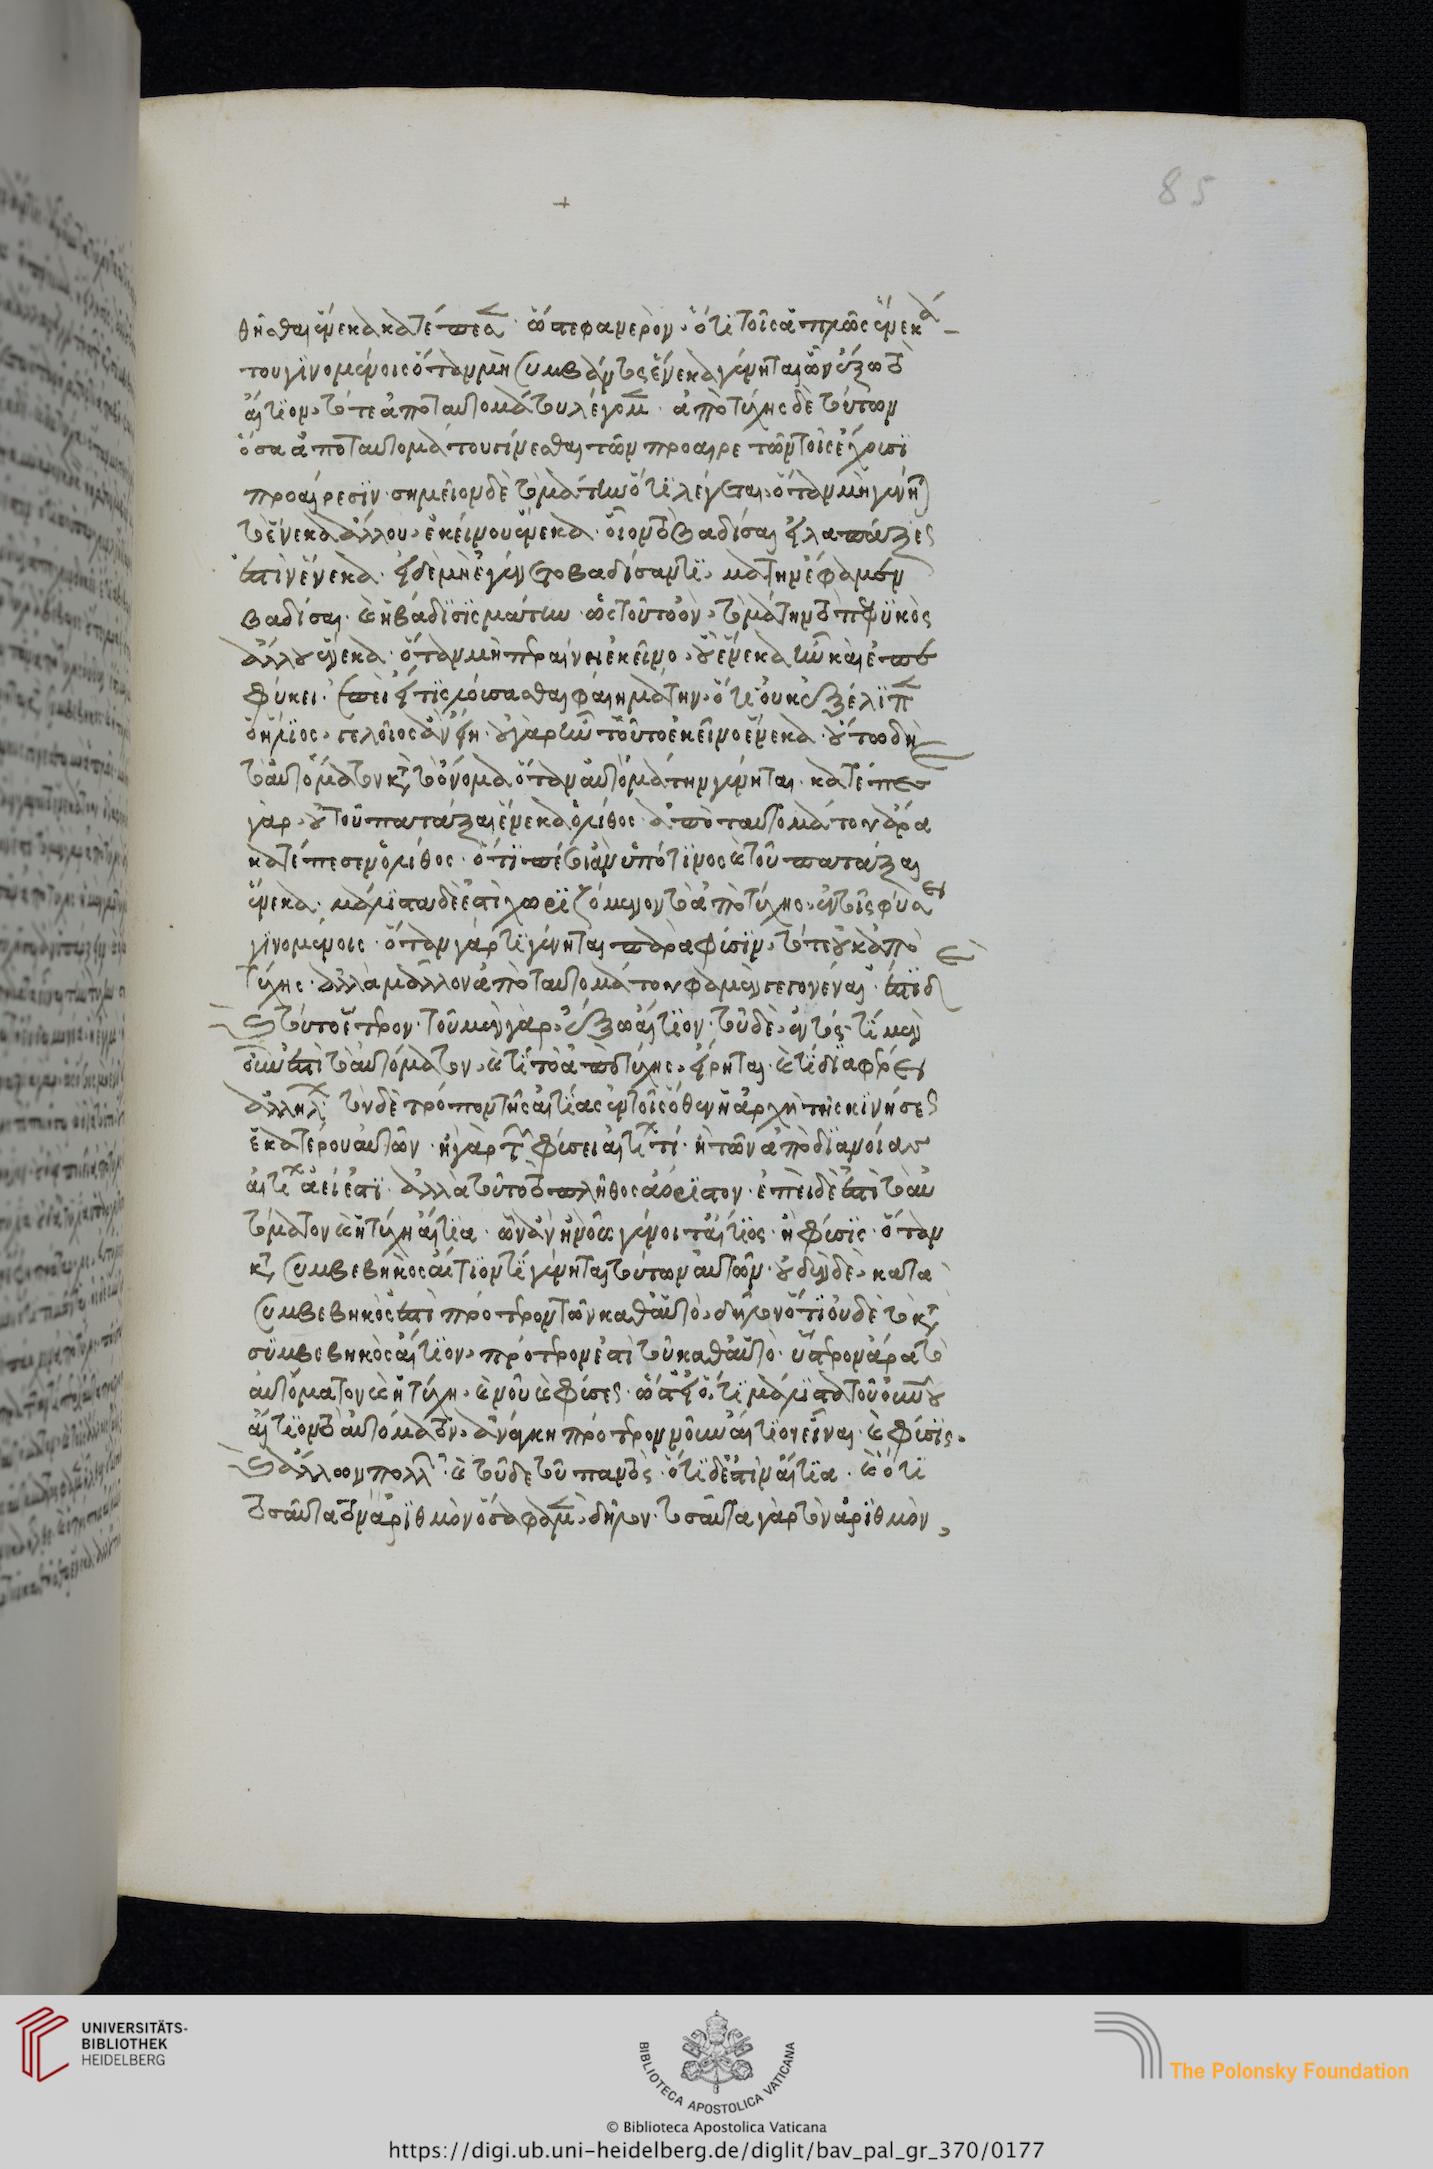 +
85
θῆσθαι ἕνεκα κατέπεσεν· ὥστε φανερὸν, ὅτι τοῖς ἁπλῶς ἕνεκά
του γϊνομένοις ὅταν μὴ συμβάντος ἕνεκα γένηται ὧν ἔξω τὸ
αἴτϊον, τότε ἀπὸ ταυτομάτου λέγομεν· ἀπὸ τύχης δὲ τούτων
ὅσα ἀπὸ ταυτομάτου γίνεσθαι τῶν προαιρετῶν τοῖς ἔχουσϊ
προαίρεσϊν· σημεῖον δὲ τὸ μάτην ὅτϊ λέγεται, ὅταν μὴ γένηται
τὸ ἕνεκα ἄλλου, ἐκείνου ἕνεκα· οἷον τὸ βαδίσαι εἰ λαπάξεώς
ἐστιν ἕνεκα· εἰ δὲ μὴ ἐγένετο βαδίσαντϊ, μάτην ἔφαμεν
βαδίσαι· καὶ ἡ βάδϊσϊς ματην· ὡς τοῦτο ὂν, τὸ μάτην τὸ πεφϋκὸς
ἄλλου ἕνεκα· ὅταν μὴ πραίνῃ ἐκεῖνο, οὗ ἕνεκα ἦν καὶ ἐπε
φύκει· ἐπεὶ εἴ τϊς λούσασθαι φαίη μάτην, ὅτϊ οὐκ ἐξέλϊπεν
ὁ ἥλϊος, γελοῖος ἂν εἴη· οὐ γὰρ ἦν τοῦτο ἐκεῖνο ἕνεκα· οὕτω δὴ
τὸ αὐτόματον κατὰ τὸ ὄνομα ὅταν αὐτὸ μάτην γένηται· κατέπεσε
γὰρ, οὐ τοῦ πατάξαι ἕνεκα ὁ λίθος· ἀπὸ ταυτομάτου ἄρα
κατέπεσεν ὁ λίθος· ὅτϊ πέσοι ἂν ὑπό τϊνος καὶ τοῦ πατάξαι
ἕνεκα· μάλϊστα δὲ ἐστὶ χωρϊζόμενον τὸ ἀπὸ τύχης, ἐν τοῖς φύσει
γϊνομένοις· ὅταν γάρ τϊ γένηται παρὰ φύσϊν, τότε οὐκ ἀπὸ
τύχης· ἀλλὰ μᾶλλον ἀπὸ ταυτομάτου φαμὲν γεγονέναι· ἔστϊ δὲ
καὶ τοῦτο ἕτερον· τοῦ μὲν γὰρ, ἔξω αἴτϊον· τοῦ δὲ, ἐντός· τί μὲν
οὖν ἐστὶ τὸ αὐτόματον, καὶ τί τὸ ἀπὸ τύχης, εἴρηται· καὶ τί διαφέρει
ἀλλήλων· τὸν δὲ τρόπον τῆς αἰτίας ἐν τοῖς ὅθεν ἡ ἀρχὴ τῆς κϊνήσεως
ἑκατέρου αὐτῶν· ἢ γὰρ τῶν φύσει αἰτίων τι· ἢ τῶν ἀπὸ δϊανοίας
αἰτίων ἀεί ἐστϊ· ἀλλὰ τοῦτο τὸ πλῆθος ἀόρϊστον· ἐπεὶ δὲ ἐστὶ τὸ αὐ
τόματον καὶ ἡ τύχη αἴτϊα· ὧν ἂν ἢ νοῦς γένοιτο αἴτϊος· ἢ φύσϊς· ὅταν
κατὰ συμβεβηκὸς αἴτϊόν τϊ γένηται τούτων αὐτῶν· οὐδὲν δὲ, κατα
συμβεβηκὸς ἐστὶ πρότερον τῶν καθ' αὑτὸ, δῆλον ὅτϊ οὐδὲ τὸ κατὰ
σϋμβεβηκὸς αἴτϊον, πρότερον ἐστὶ τοῦ καθ' αὑτὸ· ὕστερον ἄρα τὸ
αὐτόματον καὶ ἡ τύχη, καὶ νοῦ καὶ φύσεως· ὥστ' εἰ ὅτϊ μάλϊστα τοῦ οὐρανοῦ
αἴτϊον τὸ αὐτόματον, ἀνάγκη πρότερον νοῦν αἴτϊον εἶναι· καὶ φύσϊς,
καὶ ἄλλων πολλῶν· καὶ τοῦδε τοῦ παντὸς· ὅτϊ δὲ ἐστὶν αἴτϊα· καὶ ὅτϊ
τοσαῦτα τὸν ἀρϊθμὸν ὅσα φαμὲν, δῆλον· τοσαῦτα γὰρ τὸν ἀρϊθμὸν,
UNIVERSITÄTS-
BIBLIOTHEK
HEIDELBERG
BIBLIOTECA APOSTOLICA VATICANA
The Polonsky Foundation
© Biblioteca Apostolica Vaticana
https://digi.ub.uni-heidelberg.de/diglit/bav_pal_gr_370/0177